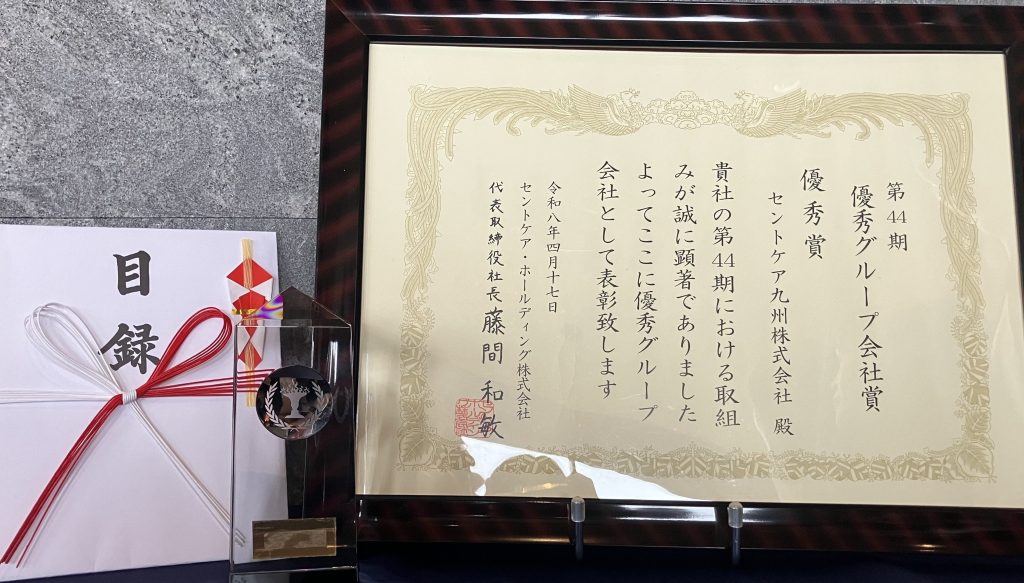 第44期
優秀グループ会社賞
セントケア九州株式会社 殿
優秀賞
貴社の第44期における取組
みが誠に顕著でありました
よってここに優秀グループ
会社として表彰致します
令和八年四月十七日
セントケア・ホールディング株式会社
代表取締役社長 藤間 和敏
目録